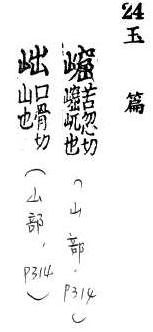 24 玉篇
苦忽切
屼也
(山部，P314)
口骨切
山也
(山部，P314)